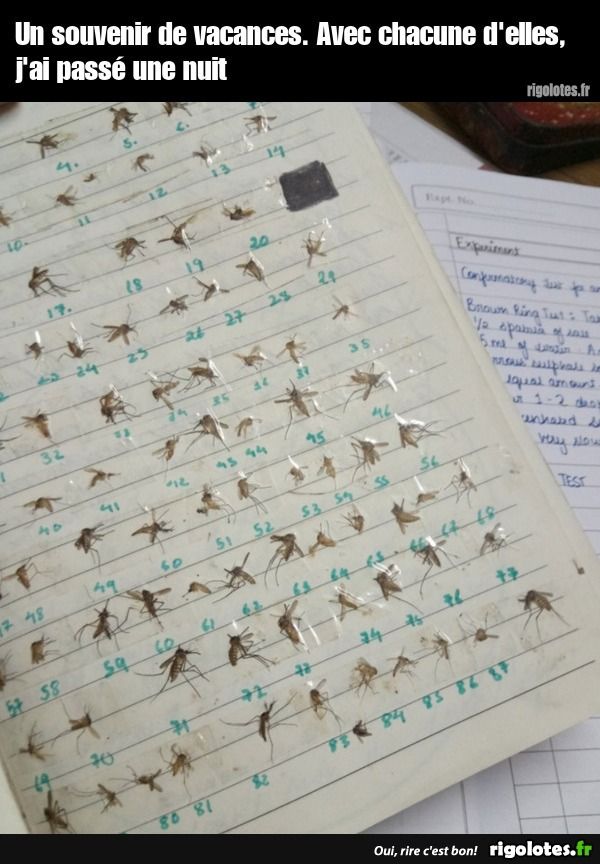 Un souvenir de vacances. Avec chacune d'elles,
j'ai passé une nuit
rigolotes.fr
4. 5. 6.
10. 11 12 13 14
17. 18 19 20
23 24 25 26 27 28 29
32 33 34 35 36 37 35
40 41 42 43 44 45 46
48 49 50 51 52 53 54 55 56
57 58 59 60 61 62 63 64 65 66 67 68
69 70 71 72 73 74 75 76 77
80 81 82 83 84 85 86 87
Expt. No.
Experiment
Confirmatory Test for
Brown Ring Test :
1/2 spatula of
5 ml of water.
sulphate
equal amount
1-2 drop
very slow
TEST
Oui, rire c'est bon! rigolotes.fr